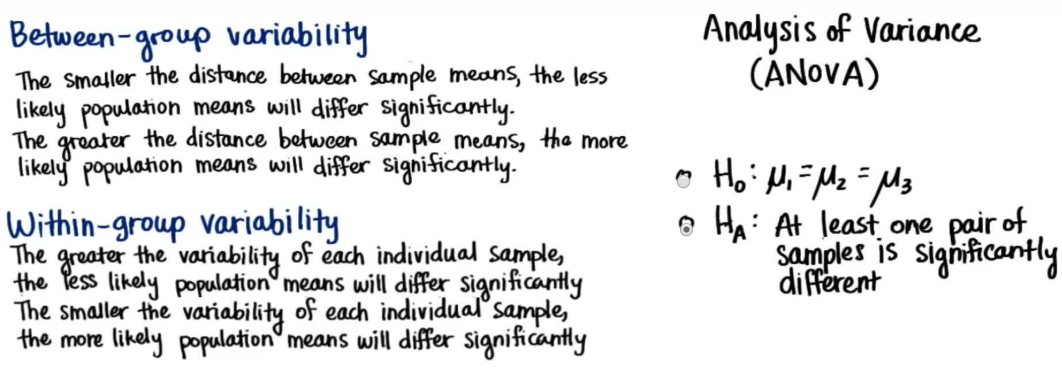 Between-group variability
The smaller the distance between sample means, the less
likely population means will differ significantly.
The greater the distance between sample means, the more
likely population means will differ significantly.
Within-group variability
The greater the variability of each individual sample,
the less likely population means will differ significantly
The smaller the variability of each individual sample,
the more likely population means will differ significantly
Analysis of Variance
(ANOVA)
H₀: μ₁ = μ₂ = μ₃
Hₐ: At least one pair of
samples is significantly
different